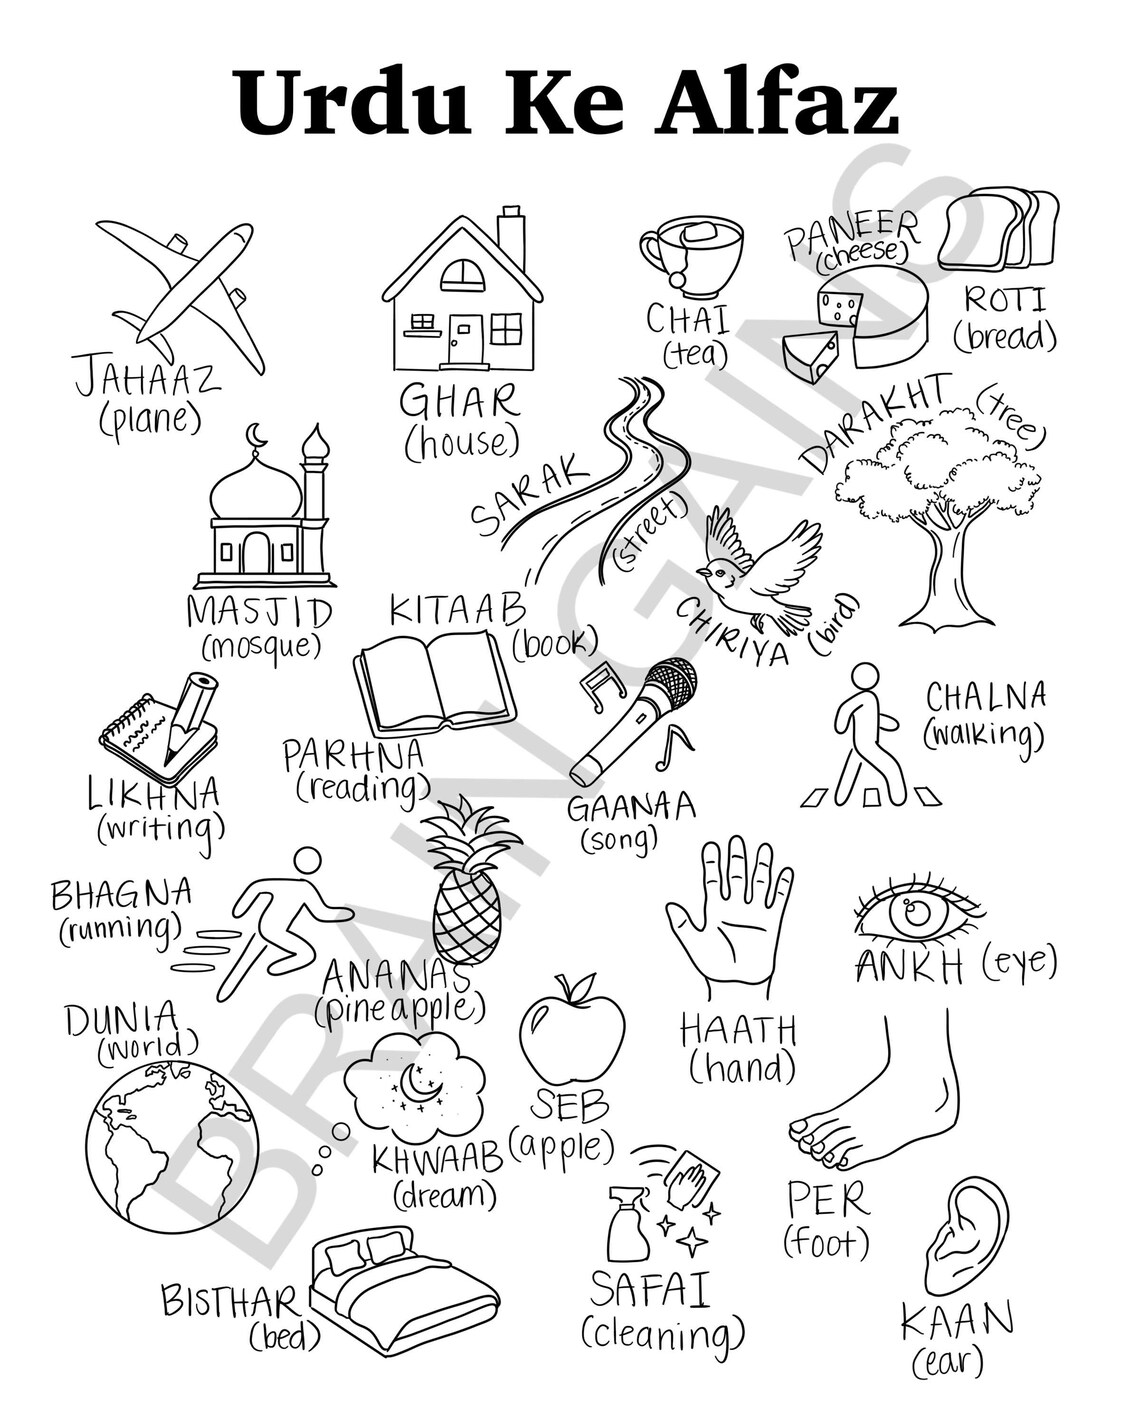 Urdu Ke Alfaz
JAHAAZ
(plane)
GHAR
(house)
CHAI
(tea)
PANEER
(cheese)
ROTI
(bread)
MASJID
(mosque)
SARAK
(street)
DARAKHT (tree)
CHIRIYA (bird)
KITAAB
(book)
LIKHNA
(writing)
PARHNA
(reading)
GAANAA
(song)
CHALNA
(walking)
BHAGNA
(running)
ANANAS
(pineapple)
HAATH
(hand)
ANKH (eye)
DUNIA
(world)
KHWAAB
(dream)
SEB
(apple)
PER
(foot)
BISTHAR
(bed)
SAFAI
(cleaning)
KAAN
(ear)
BRAIN GAINS